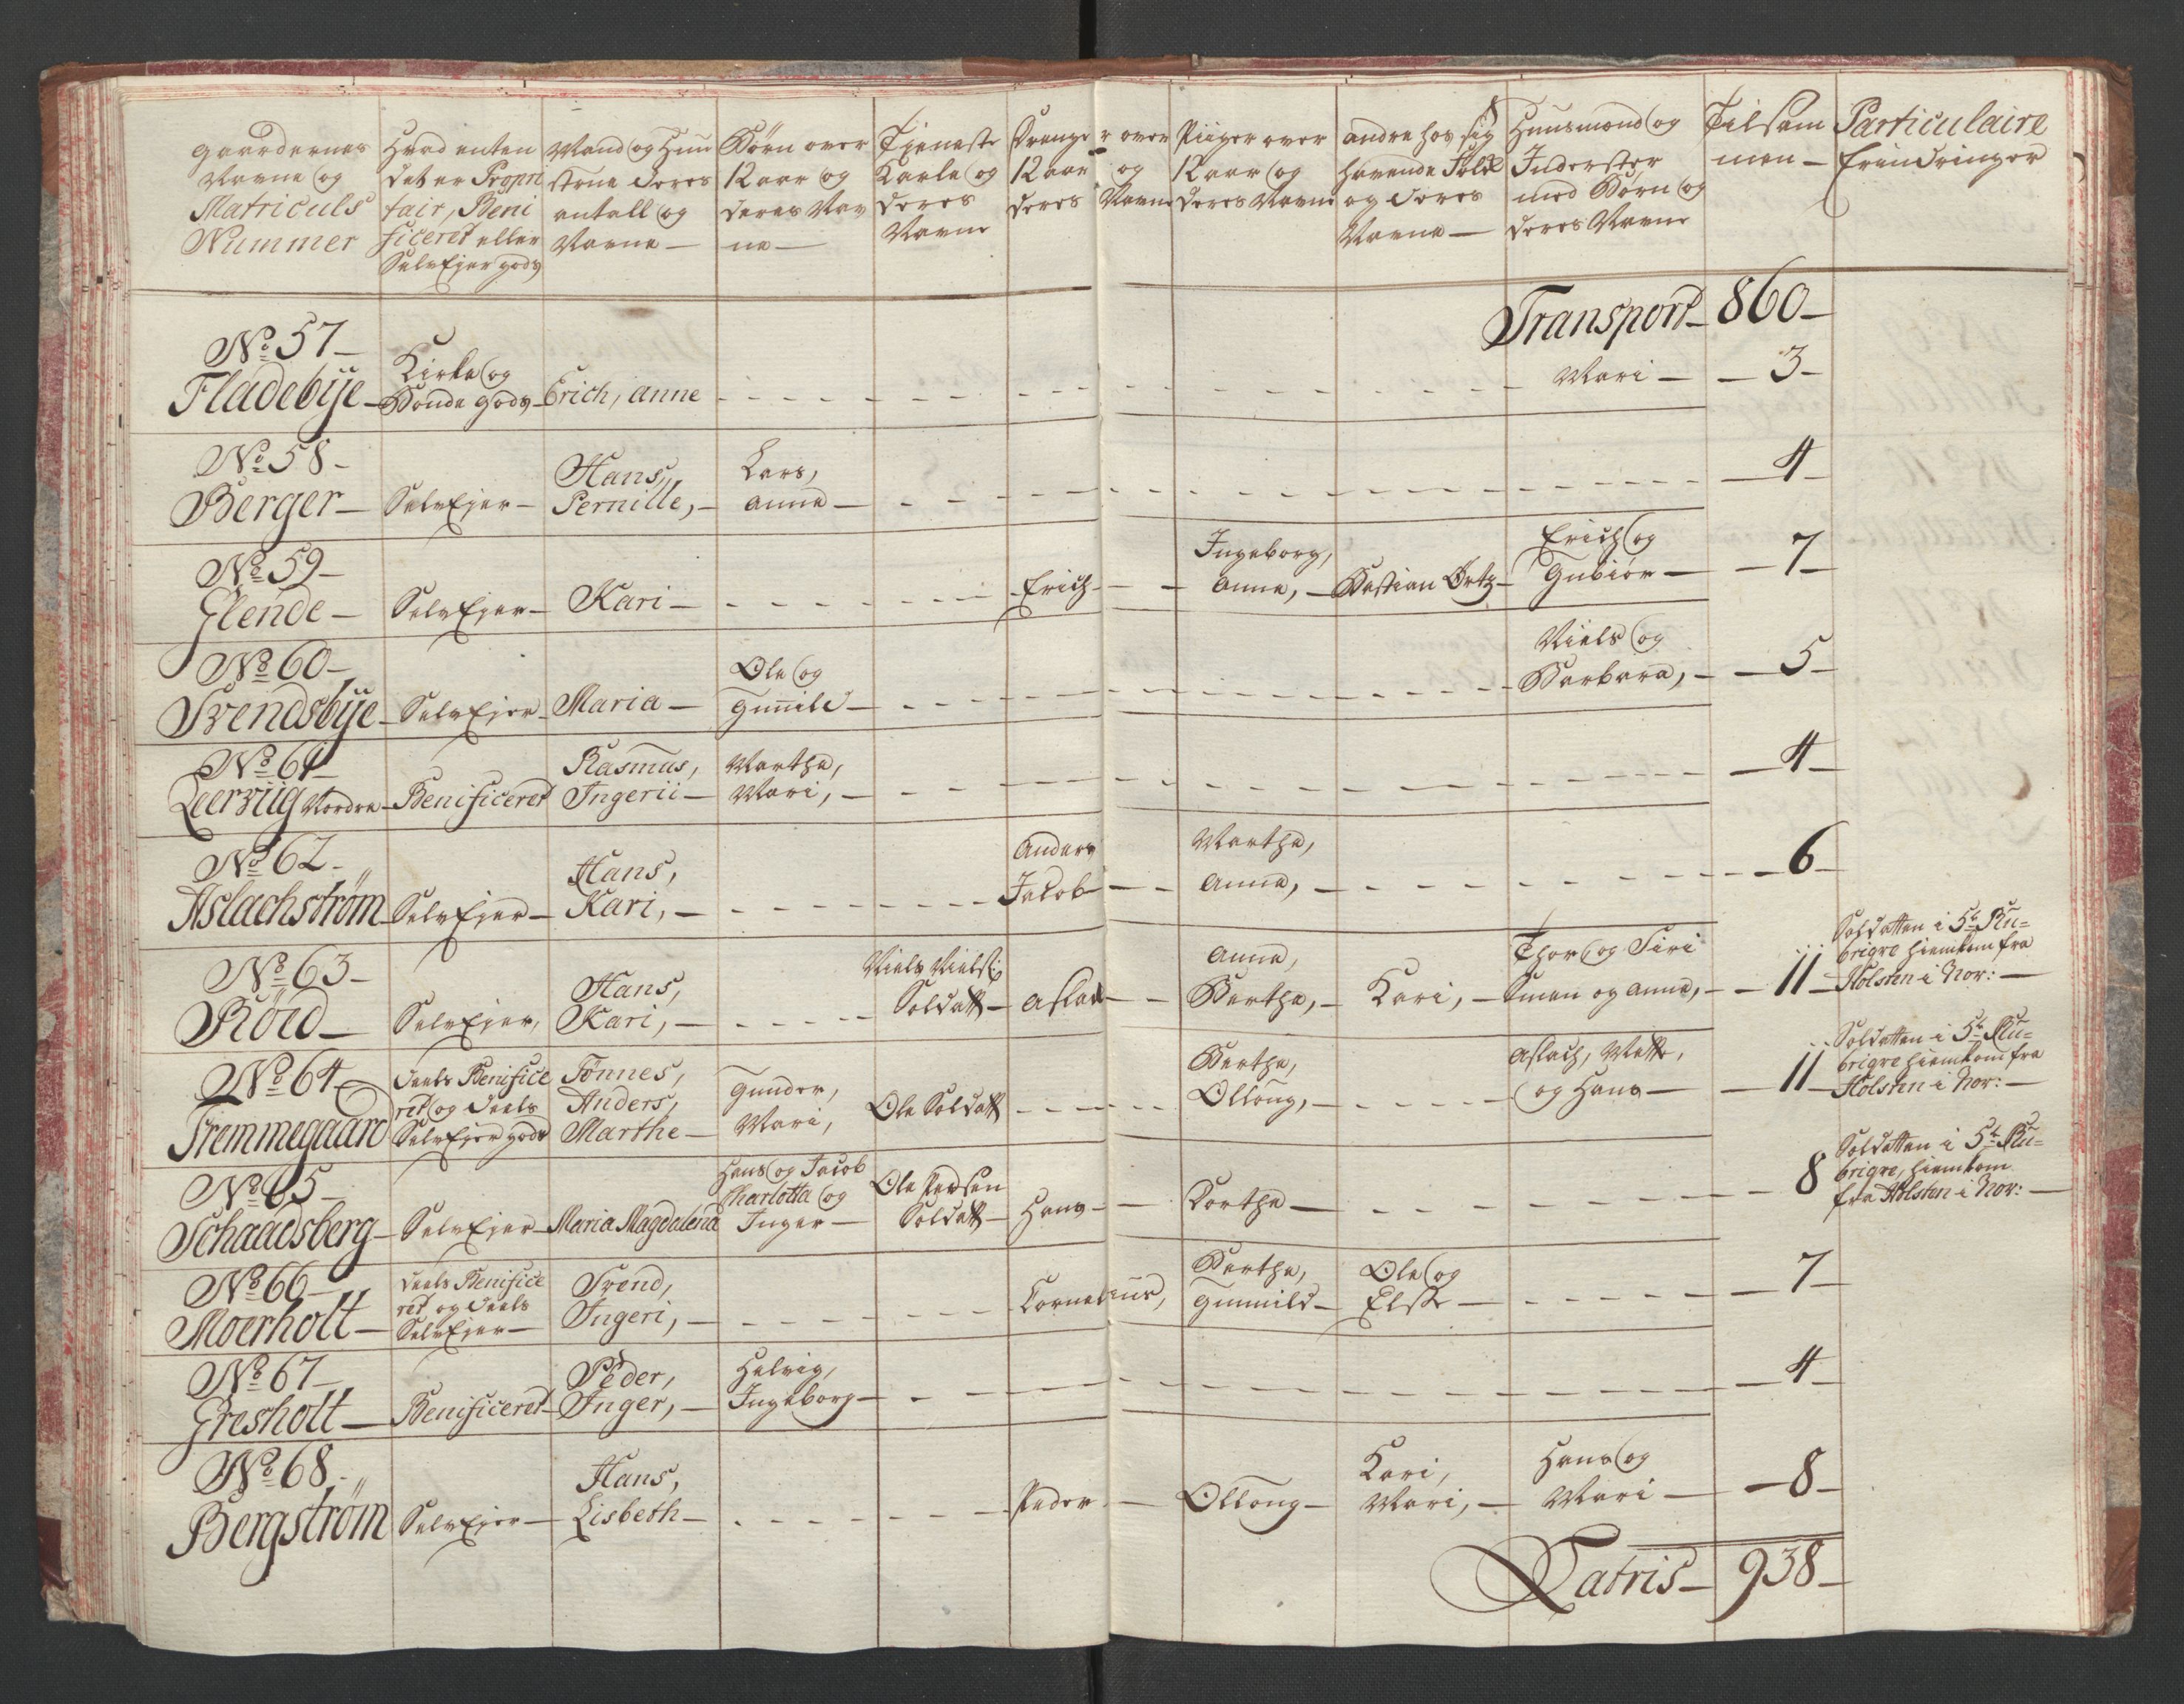 Gaardernes Navne og Matriculs Nummer
Hvad enten det er Proprietair, Benificeret eller SelvEjer gods
Mand og Hustrue deres antall og Navne —
Børn over 12 aar og deres Navne —
Tjeneste Karle og deres Navne
Drenge over 12 aar og deres Navne
Piiger over 12 aar og deres Navne
andre hos sig havende Folk og deres Navne —
Huusmænd og Inderster med Børn og deres Navne
Tilsammen —
Particulaire Erindringer
Transport — 860 —
No 57 —
Fladebÿe — Kirke og Bonde gods — Erich, anne Mari — 3 —
No 58 —
Berger — SelvEjer — Hans, Pernille, — Lars, anne — 4 —
No 59 —
Glende — SelvEjer — Kari — Erich — Ingeborg, anne, — Bastian Ørtz — Erich og Gubiør — 7 —
No 60 —
Svendsbÿe — SelvEjer — Maria — Ole og Gunild — Niels og Barbara, — 5 —
No 61 —
Leerviig Nordre — Benificeret Rasmus, Ingerii — Marthe, Mari, — 4 —
No 62 —
Aslachstrøm — SelvEjer — Hans, Kari, — Anders Jacob — Marthe, Anne, — 6 —
No 63 —
Röed — SelvEjer, Hans, Kari, — Niels Niels: Soldatt — Aslak — Anne, Berthe, — Kari, — Thor og Siri Smen og anne, — 11 — Soldatten i 5te Rubrigve hiemkom fra Holsten i Nov: —
No 64
Tremmegaard deels Benificeret og deels SelvEjer gods Tönnes, Anders, Marthe — Gunder, Mari, Ole Soldatt — Berthe, Olloug, — Aslach, Mette, og Hans — 11 — Soldatten i 5te Rubrigve hiemkom fra Holsten i Nov: —
No 65 —
Schaadsberg — SelvEjer — Maria Magdalena Hans og Jacob Charlotta og Inger — Ole Pedersen Soldatt — Hans — Dorthe — 8 Soldatten i 5te Rubrigve, hiemkom fra Holsten i Nov: —
No 66 —
Moerholt — deels Benificeret og deels SelvEjer — Svend, Ingeri, — Cornelius, Berthe, Gunnild — Ole og Else — 7 —
No 67 —
Gresholt — Benificeret — Peder, Inger, — Helvig, Ingeborg — 4 —
No 68 —
Bergstrøm SelvEjer — Hans, Lisbeth — Peder — Olloug — Kari, Mari, — Hans og Mari — 8 —
Latris — 938 —